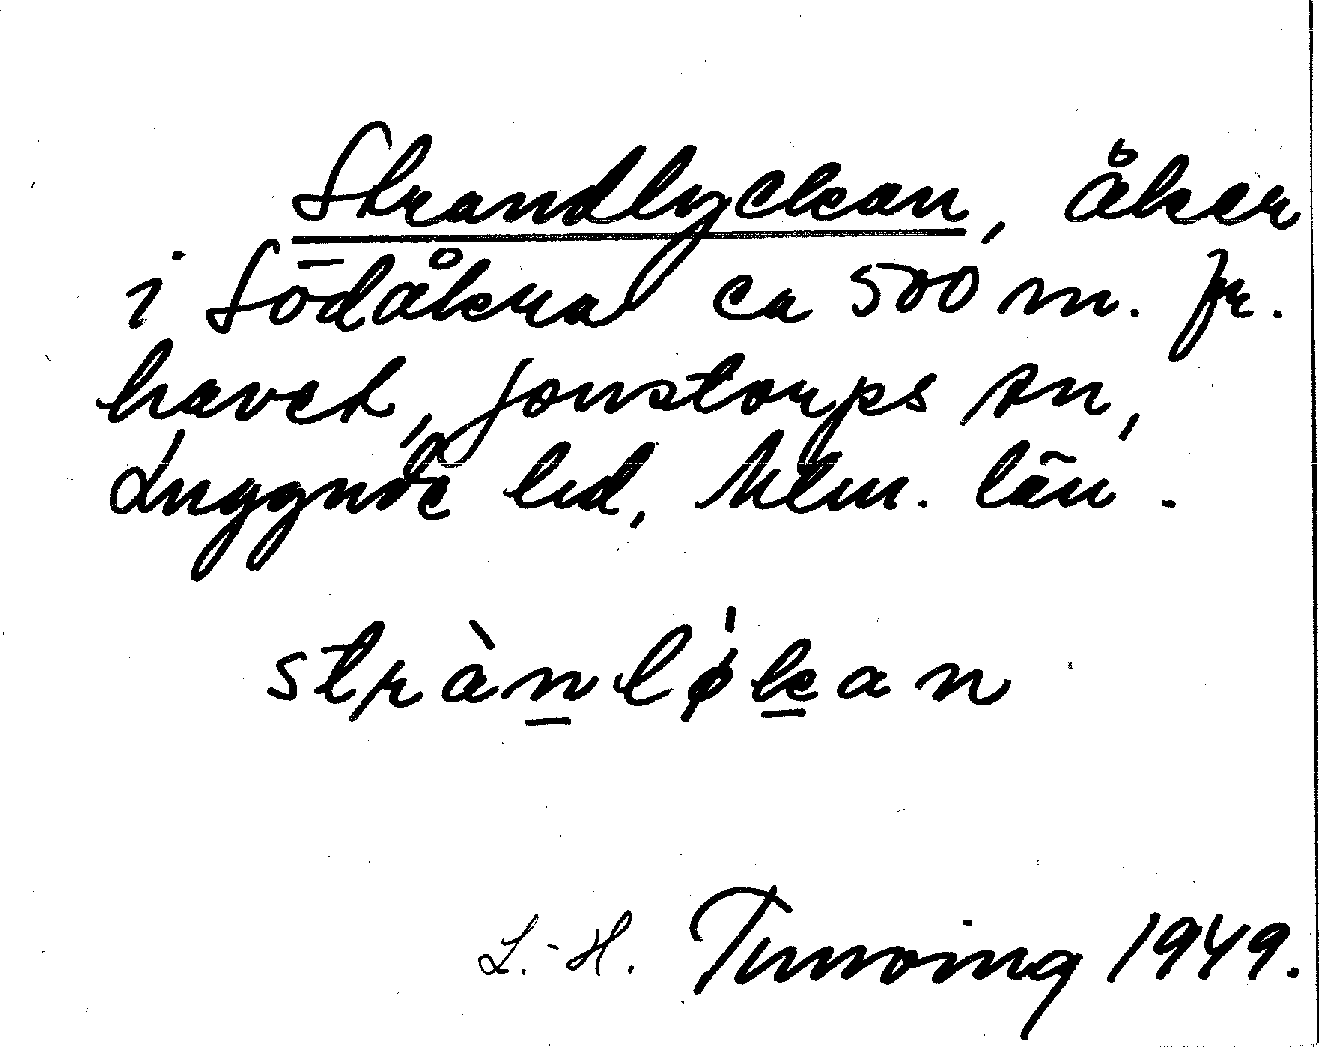 Strandlyckan, åker
i Södåkra ca 500 m. fr.
havet, Jonstorps sn,
Luggude hd, Mlm. län.
strànløkan
L.-H. Tunving 1949.